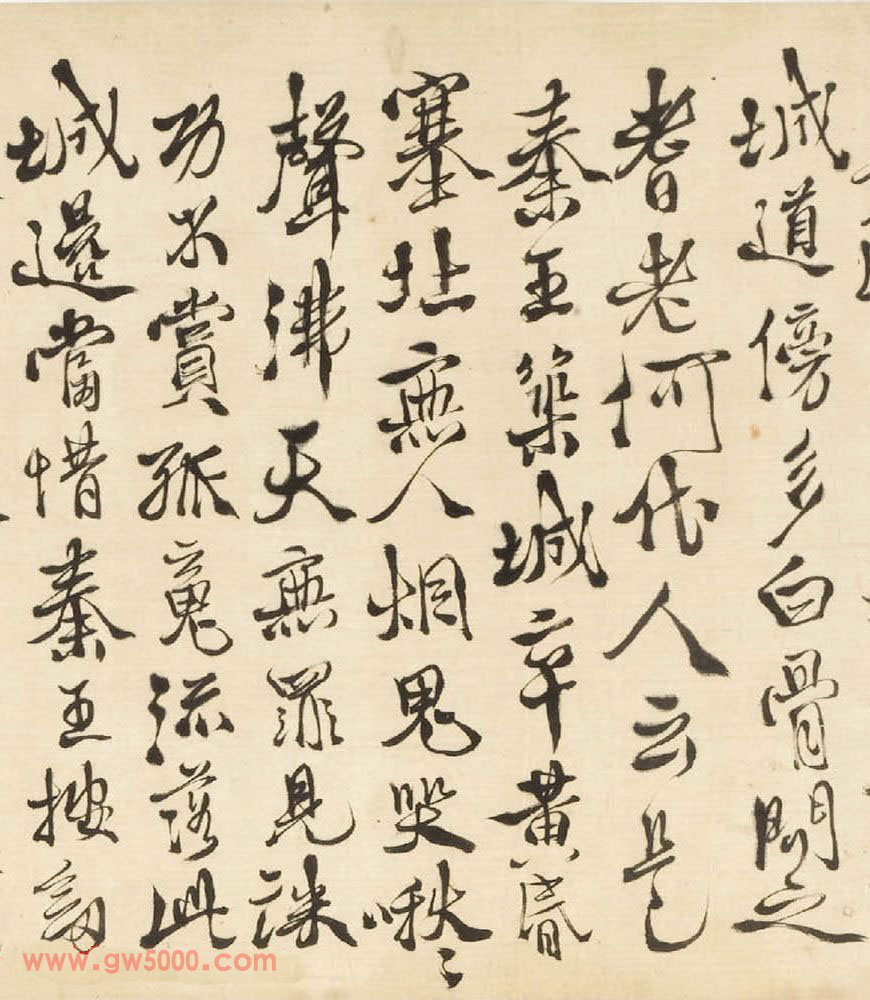 城道傍多白骨問之
耆老何代人云是
秦王築城卒黃昏
塞北無人烟鬼哭啾〻
聲沸天無罪見誅
功不賞孤魂流落此
城邊當惜秦王按劍
www.gw5000.com